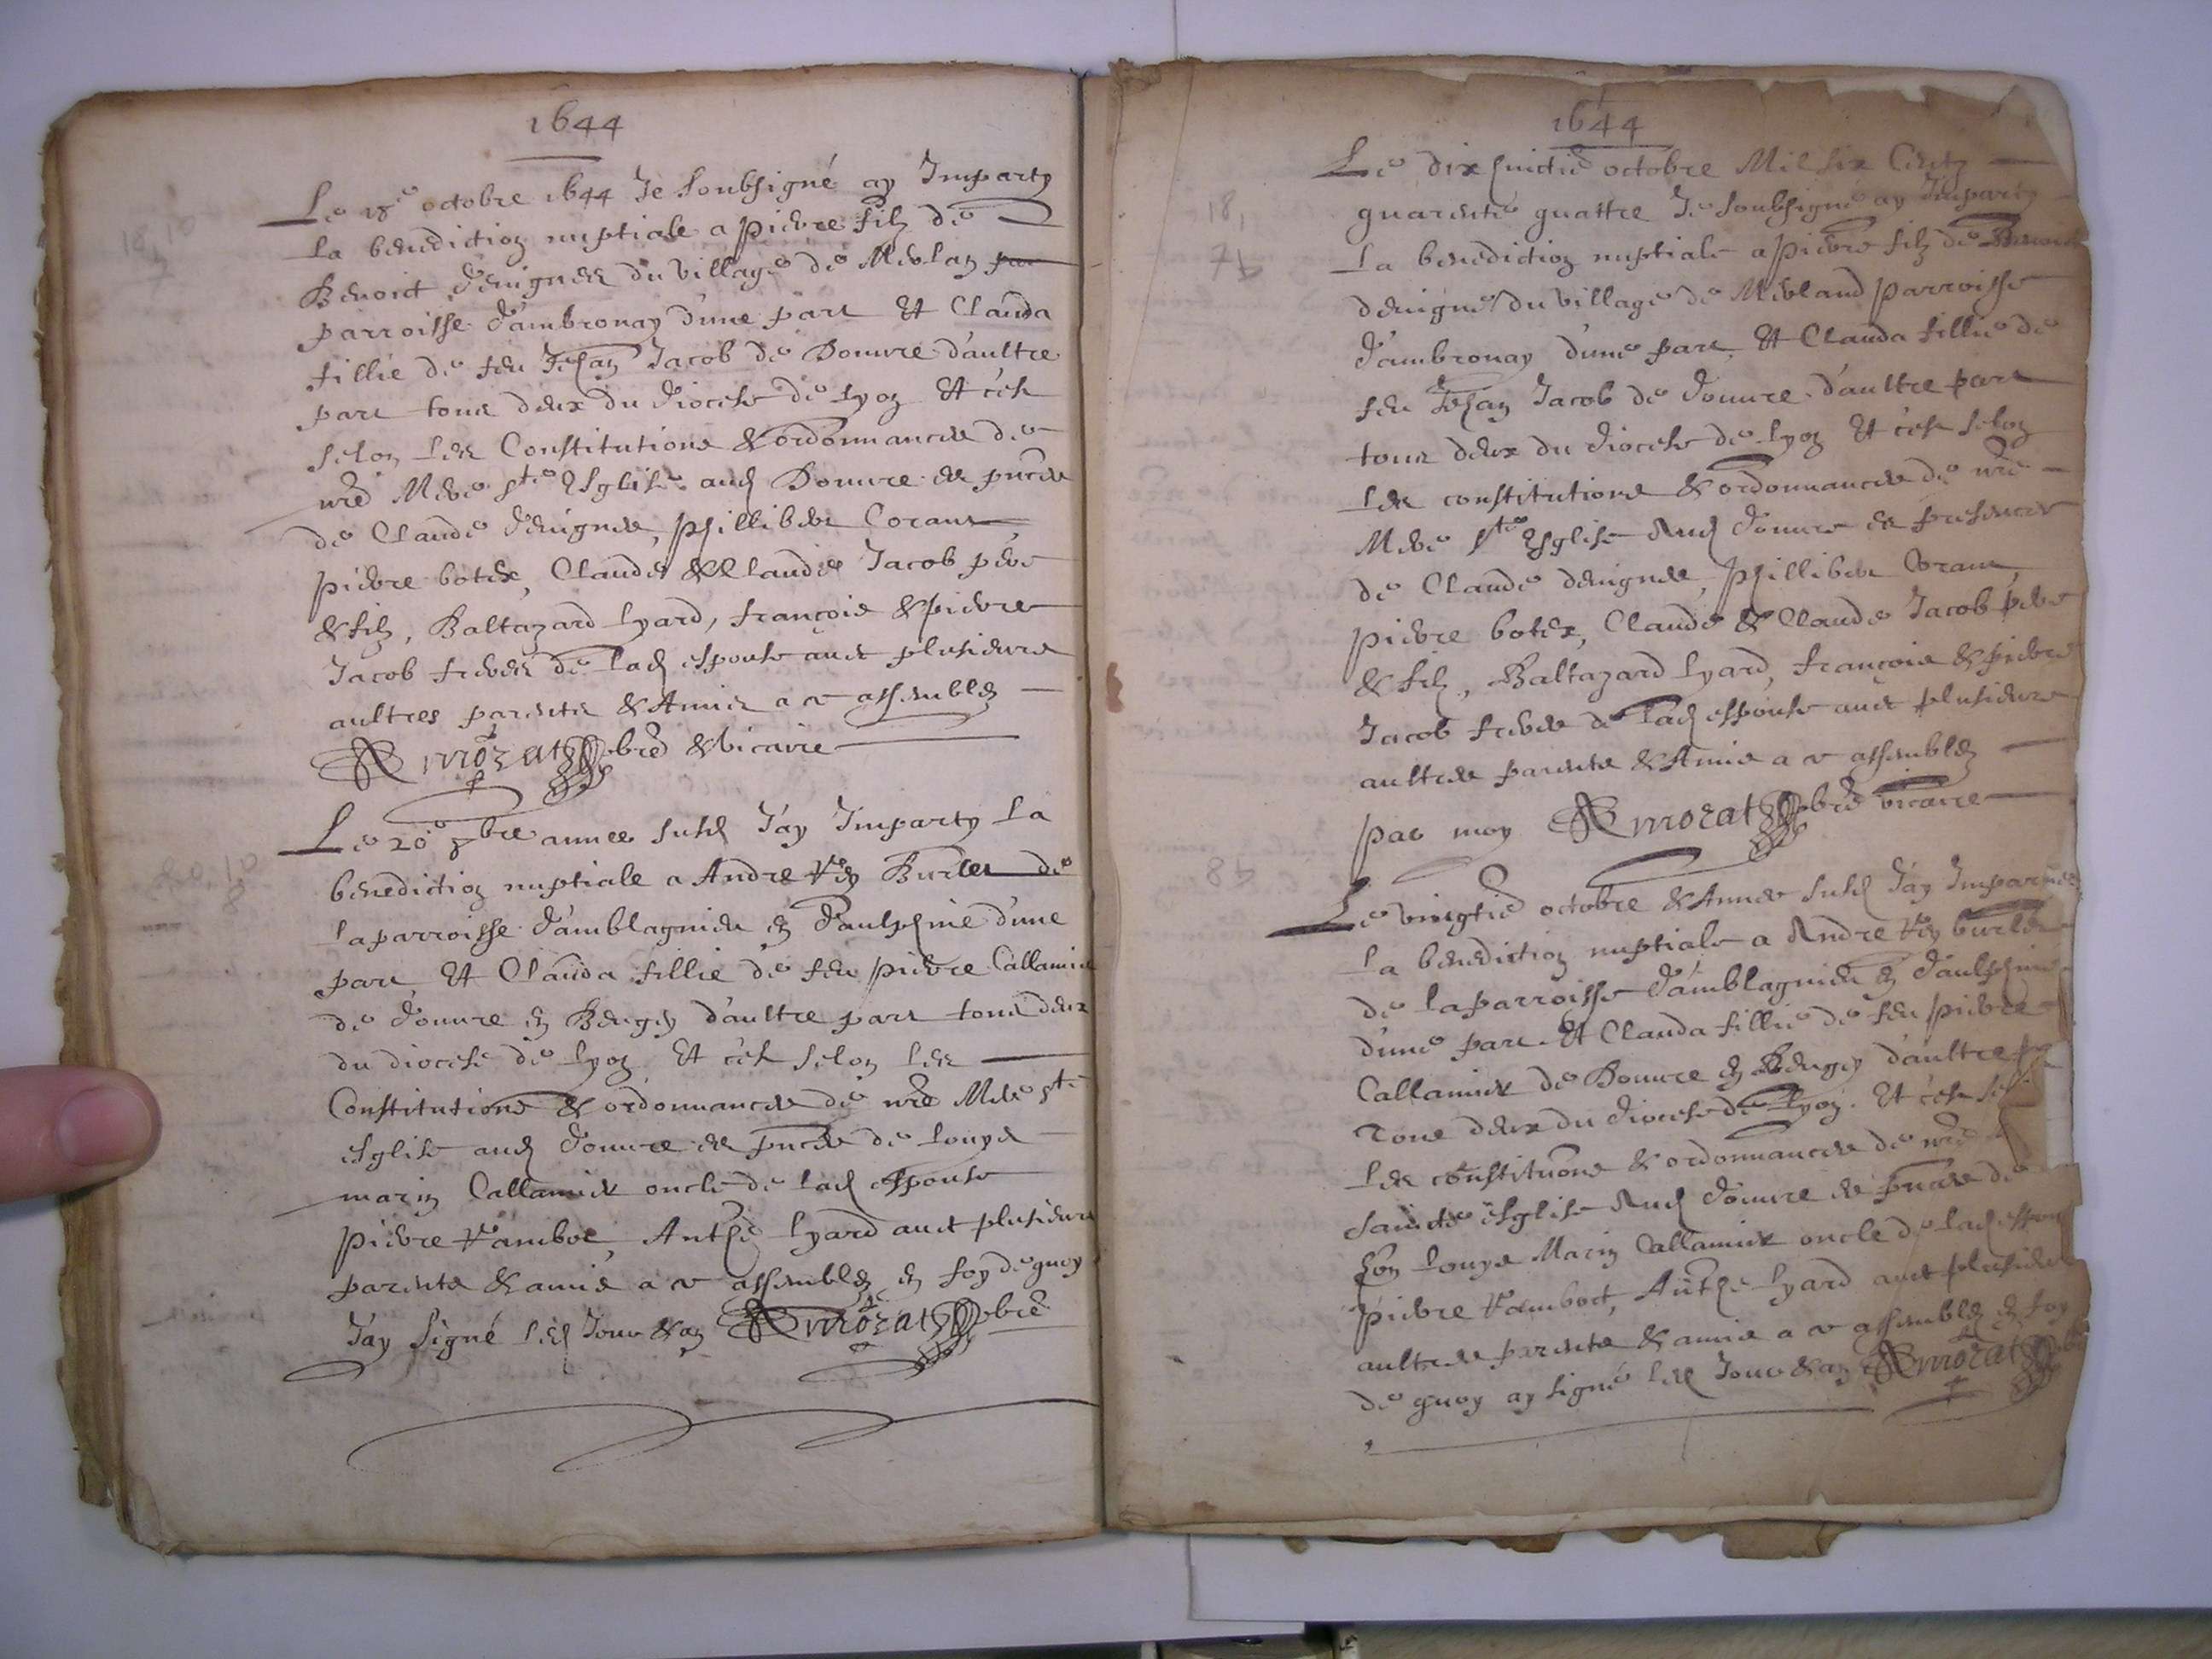 1644
Le 18e octobre 1644 Je soubsigné ay Imparty
la benediction nuptiale a pierre filz de
Benoict devignes du village de Merlan
parroisse d'ambronay d'une part Et Clauda
fillie de feu Jehan Jacob de Douvre d'aultre
part tous deux du diocese de lyon Et c'est
selon les Constitutions & ordonnances de
nre Mere ste Esglise aud Douvre es pnces
de Claude devignes, phillibert Corant
pierre botex, Claude & Claude Jacob pere
& filz, Baltazard lyard, françois & pierre
Jacob freres de lad espouse avec plusieurs
aultres parents & Amis a ce assemblez
Morat pbre & vicaire
Le 20e 8bre annee susd J'ay Imparty la
benediction nuptiale a Andre Burlet de
la parroisse d'amblagnieu en daulphiné d'une
part, Et Clauda fillie de feu pierre Callamier
de douvre en Beugey d'aultre part tous deux
du diocese de lyon Et c'est selon les
Constitutions & ordonnances de nre Mere ste
esglise aud douvre es pnces de louys
marin Callamier oncle de lad espouse
pierre Vambot, Anthe lyard avec plusieurs
parents & amis a ce assemblez en foy de quoy
J'ay signé lesd Jour & an Morat pbre
1644
Le dix huictie octobre Mil six Centz
quarente quattre Je soubsigné ay Imparty
la benediction nuptiale a pierre filz de Benoict
devigne du village de Merland parroisse
d'ambronay d'une part, Et Clauda fillie de
feu Jehan Jacob de douvre d'aultre part
tous deux du diocese de lyon Et c'est selon
les constitutions & ordonnances de nre
Mere ste Esglise Aud douvre es presences
de Claude devignes, phillibert Corant,
pierre botex, Claude & Claude Jacob pere
& filz, Baltazard lyard, françois & pierre
Jacob freres de lad espouse avec plusieurs
aultres parents & Amis a ce assemblez
par moy Morat pbre vicaire
18,
7
8
Le vingtie octobre & Annee susd J'ay Imparti
la benediction nuptiale a Andre burlet
de la parroisse d'amblagnieu en daulphiné
d'une part. Et Clauda fillie de feu pierre
Callamier de Douvre en Beugey d'aultre
Tous deux du diocese de lyon. Et c'est
les constitutions & ordonnances de nre
saincte esglise Aud douvre es pnces de
hon louys Marin Callamier oncle de lad
pierre Vambot, Anthe lyard avec plusieurs
aultres parents & amis a ce assemblez en foy
de quoy ay signé lesd Jour & an Morat